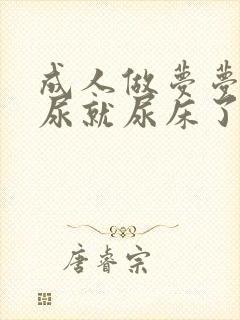 成人做梦梦
尿就尿床了
唐睿宗